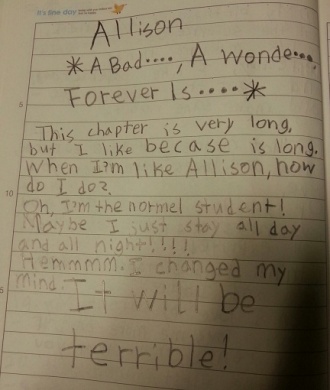 It's one day
Allison
*A Bad...., A Wonde...,
Forever Is ....*
5
This chapter is very long,
but I like becase is long.
When I'm like Allison, how
do I do?,
10
Oh, I'm the normel student!
Maybe I just stay all day
and all night!!!!
Hemmmm. I changed my
mind. It will be
5
terrible!